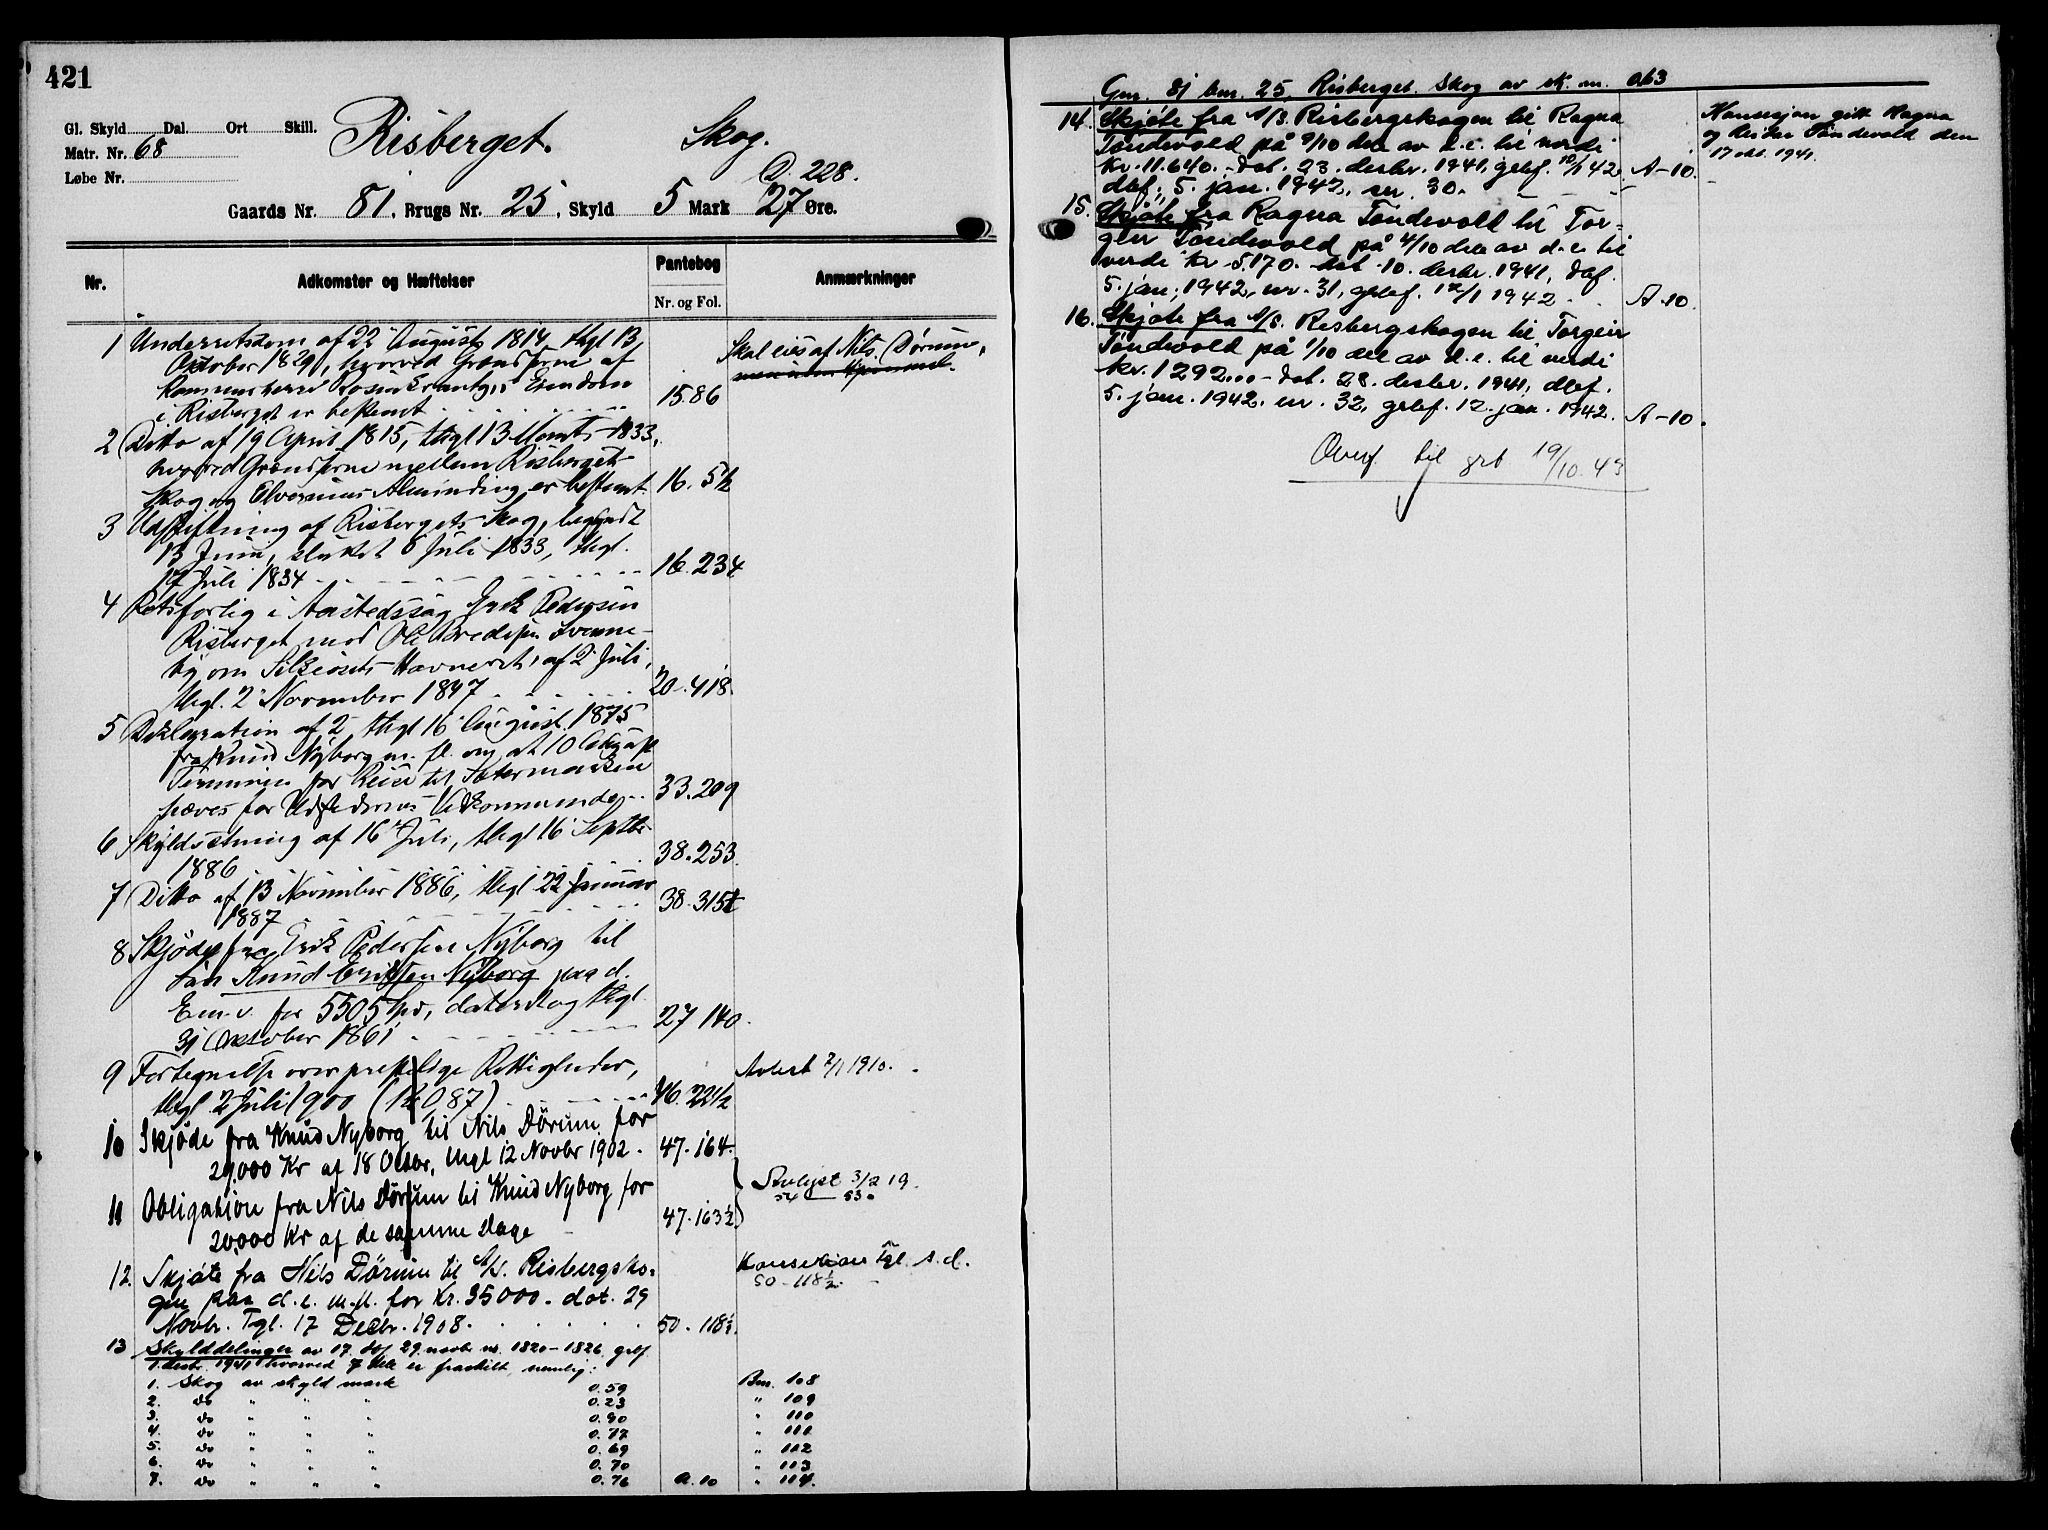 421
Gl. Skyld Dal. Ort Skill.
Matr. Nr. 68
Løbe Nr.
Risberget. Skog.
D. 228.
Gaards Nr. 81, Brugs Nr. 25, Skyld 5 Mark 27 Øre.
Nr. Adkomster og Hæftelser Pantebog Nr. og Fol. Anmærkninger
1 Underretsdom af 22 August 1814, thgl 13
Oktober 1829, hvorved Grændserne af
Kammerherre Rosenkrantz's Eiendom
i Risberget er bestemt 15.86
Skal eies af Nils Dørum,
2 Ditto af 19 April 1815, thgl 13 Marts 1833,
hvorved Grændserne mellem Risbergets
Skog og Elverums Alminding er bestemt 16. 5½
3 Udskiftning af Risbergets Skog, begyndt
13 Juni, sluttet 6 Juli 1833, thgl.
17 Juli 1834 16.234
4 Retsforlig i Aastedssag Erik Pedersen
Risberget mod Ole
by om Havneret, af 2 Juli,
thgl. 2 November 1847 20.418
5 Deklaration af 2, thgl 16 August 1875
fra Knud Nyborg m. fl. om at 10 Augusts
Terminen for Reise til Sætermarken
hæves for Udstedernes Vedkommende 33.209
6 Skyldsetning af 16 Juli, thgl 16 Septbr
1886 38.253
7 Ditto af 13 November 1886, thgl 22 Januar
1887 38.315
8 Skjøde fra Erik Pedersen Nyborg til
Søn Knud Eriksen Nyborg paa d.
Eiend. for 5505 Spd, dateret og thgl
31 Oktober 1861 27 140
9 Fortegnelse over Rettigheder,
thgl 2 Juli 1900 (1 087) 46.221½
Avlest 7/1 1910.
10 Skjøde fra Knud Nyborg til Nils Dørum for
29,000 Kr af 18 Octbr, thgl 12 Novbr 1902. 47.164
11 Obligation fra Nils Dørum til Knud Nyborg for
20,000 Kr af de samme Dage 47.163½
Avlyst 3/2 19.
54 — 530
12. Skjøte fra Nils Dørum til A/S. Risbergsko-
gen paa d.e. m.m. for Kr. 35000. dat. 29
Novbr. Tgl. 17 Decbr. 1908. 50. 118½
Konsesjon Tgl. s.d.
50 - 118½.
13 Skylddelinger av 17. dbf 29. novbr nr. 1820-1826, gebf.
1. desbr. 1941 hvorved 7 dele er fraskilt, nemlig:
1. Skog av skyld mark 0.59 Bnr. 108
2. do " " " 0.23 " 109
3. do " " " 0.90 " 110
4. do " " " 0.77 " 111
5. do " " " 0.69 " 112
6. do " " " 0.70 " 113
7. do " " " 0.76 A. 10 " 114.
Gnr. 81 bnr. 25. Risberget. Skog av sk. m. 0.63
14. Skjøte fra A/S. Risbergskogen til Ragna
Tandevold på 9/10 del av d.e. til verdi
kr. 11.640. - dat. 23. desbr. 1941, gebf. 12/1 42.
dbf. 5. jan. 1942, nr. 30. A-10.
Konsesjon gitt Ragna
og Reidar Tandevold den
17 okt. 1941.
15. Skjøte fra Ragna Tandevold til Tor-
geir Tandevold på 4/10 del av d.e. til
verdi kr 5.170. dat. 10. desbr. 1941, dbf.
5. jan. 1942, nr. 31, gebf. 12/1 1942. A-10.
16. Skjøte fra A/S. Risbergskogen til Torgeir
Tandevold på 1/10 del av d.e. til verdi
kr. 1292.00 - dat. 28. desbr. 1941, dbf.
5. jan. 1942. nr. 32, gebf. 12. jan. 1942. A-10.
Overf. til grb 19/10.43